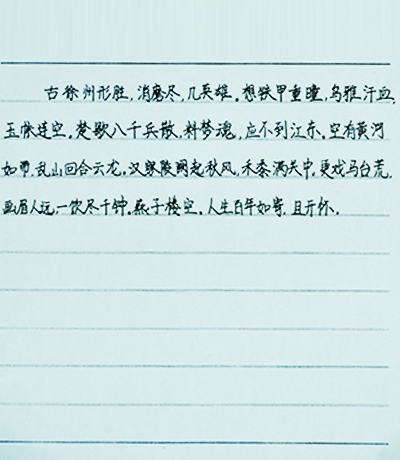 古徐州形胜,消磨尽,几英雄。想铁甲重瞳,乌骓汗血,
玉帐连空。楚歌八千兵散,料梦魂,应不到江东。空有黄河
如带,乱山回合云龙。汉家陵阙起秋风,禾黍满关中。更戏马台荒,
画眉人远,一饮尽千钟。燕子楼空。人生百年如寄,且开怀。